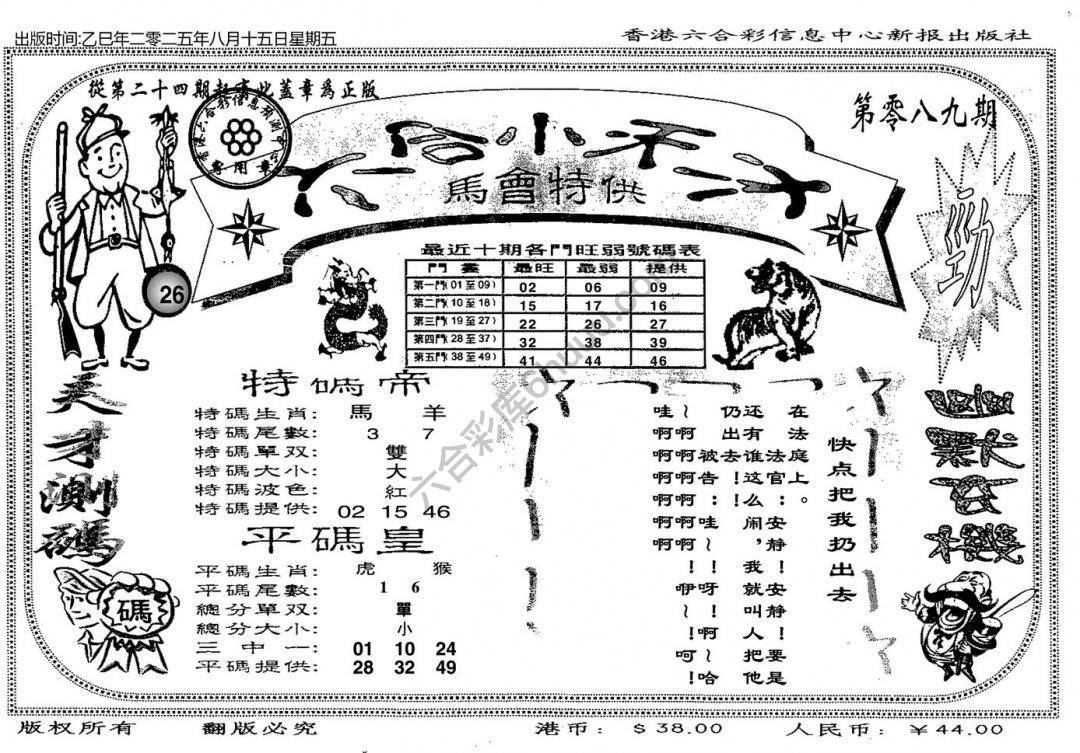 出版时间:乙巳年二零二五年八月十五日星期五
香港六合彩信息中心新报出版社
從第二十四期起 此蓋章爲正版
第零八九期
專用章
馬會特供
勁
26
最近十期各門旺弱號碼表
門 最旺 最弱 提供
第一門(01至09) 02 06 09
第二門(10至18) 15 17 16
第三門(19至27) 22 26 27
第四門(28至37) 32 38 39
第五門(38至49) 41 44 46
天才測碼
特碼帝
特碼生肖: 馬 羊
特碼尾數: 3 7
特碼單双: 雙
特碼大小: 大
特碼波色: 紅
特碼提供: 02 15 46
平碼皇
平碼生肖: 虎 猴
平碼尾數: 1 6
總分單双: 單
總分大小: 小
三中一: 01 10 24
平碼提供: 28 32 49
碼
幽默玄機
快点把我扔出去
哇~ 仍还 在
啊啊 出有 法
啊啊被去谁法庭
啊啊告!这官上
啊啊:!么:。
啊啊哇 闹安
啊啊~ ,静
!! 我!
咿呀 就安
~! 叫静
!啊 人!
呵~ 把要
!哈 他是
六合彩库
版权所有 翻版必究 港币: $38.00 人民币: ¥44.00